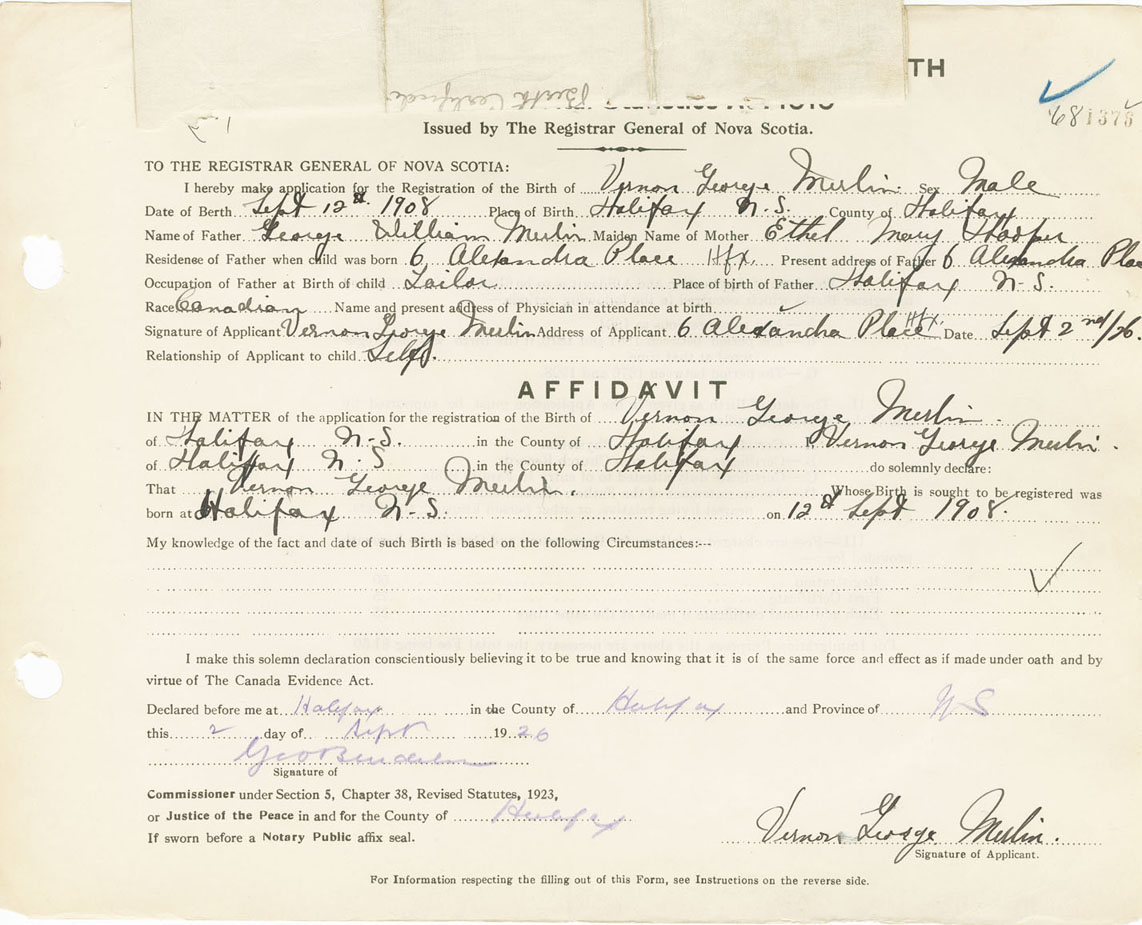 TH
Birth Certificate
Issued by The Registrar General of Nova Scotia.
TO THE REGISTRAR GENERAL OF NOVA SCOTIA:
I hereby make application for the Registration of the Birth of Vernon George Merlin. Sex Male
Date of Berth Sept 12th 1908 Place of Birth Halifax N.S. County of Halifax
Name of Father George William Merlin Maiden Name of Mother Ethel Mary Hooper
Residense of Father when child was born 6 Alexandra Place Hfx Present address of Father 6 Alexandra Plac
Occupation of Father at Birth of child Tailor Place of birth of Father Halifax N-S.
Race Canadian Name and present address of Physician in attendance at birth
Signature of Applicant Vernon George Merlin Address of Applicant 6 Alexandra Place Hfx. Date Sept 2nd/26.
Relationship of Applicant to child Self.
AFFIDAVIT
IN THE MATTER of the application for the registration of the Birth of Vernon George Merlin.
of Halifax N-S. in the County of Halifax I, Vernon George Merlin.
of Halifax N-S in the County of Halifax do solemnly declare:
That Vernon George Merlin. Whose Birth is sought to be registered was
born at Halifax N-S. on 12th Sept 1908.
My knowledge of the fact and date of such Birth is based on the following Circumstances:---
I make this solemn declaration conscientiously believing it to be true and knowing that it is of the same force and effect as if made under oath and by
virtue of The Canada Evidence Act.
Declared before me at Halifax in the County of Halifax and Province of NS
this 2 day of Sept 1926
Signature of
Commissioner under Section 5, Chapter 38, Revised Statutes, 1923,
or Justice of the Peace in and for the County of Halifax
If sworn before a Notary Public affix seal.
Vernon George Merlin.
Signature of Applicant.
For Information respecting the filling out of this Form, see Instructions on the reverse side.